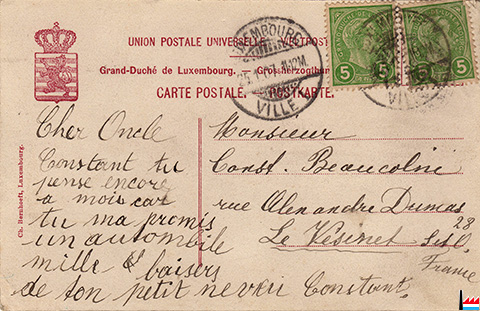 UNION POSTALE UNIVERSELLE. WELTPOST
Grand-Duché de Luxembourg. Grossherzogthum
CARTE POSTALE. POSTKARTE.
LUXEMBOURG
VILLE
5 5
5 5
Ch. Bernhoeft, Luxembourg.
Cher Oncle
Constant tu
pense encore
a mois car
tu ma promis
un automobile
mille & baisers
de ton petit neveu Constant.
Monsieur
Const. Beaucolini
rue Alexandre Dumas
28
Le Vésinet S et O
France